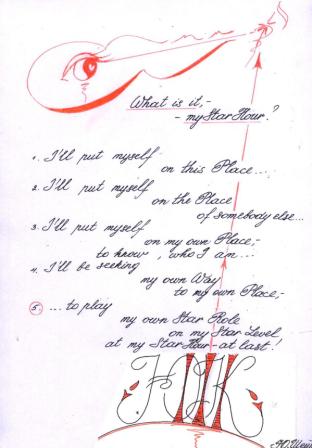 What is it,-
- my Star Hour?
1. I'll put myself
on this Place...,
2. I'll put myself
on the Place
of somebody else...
3. I'll put myself
on my own Place,-
to know, who I am...
4. I'll be seeking
my own Way
to my own Place,-
5. ...to play
my own Star Role
on my Star Level
at my Star Hour at last!